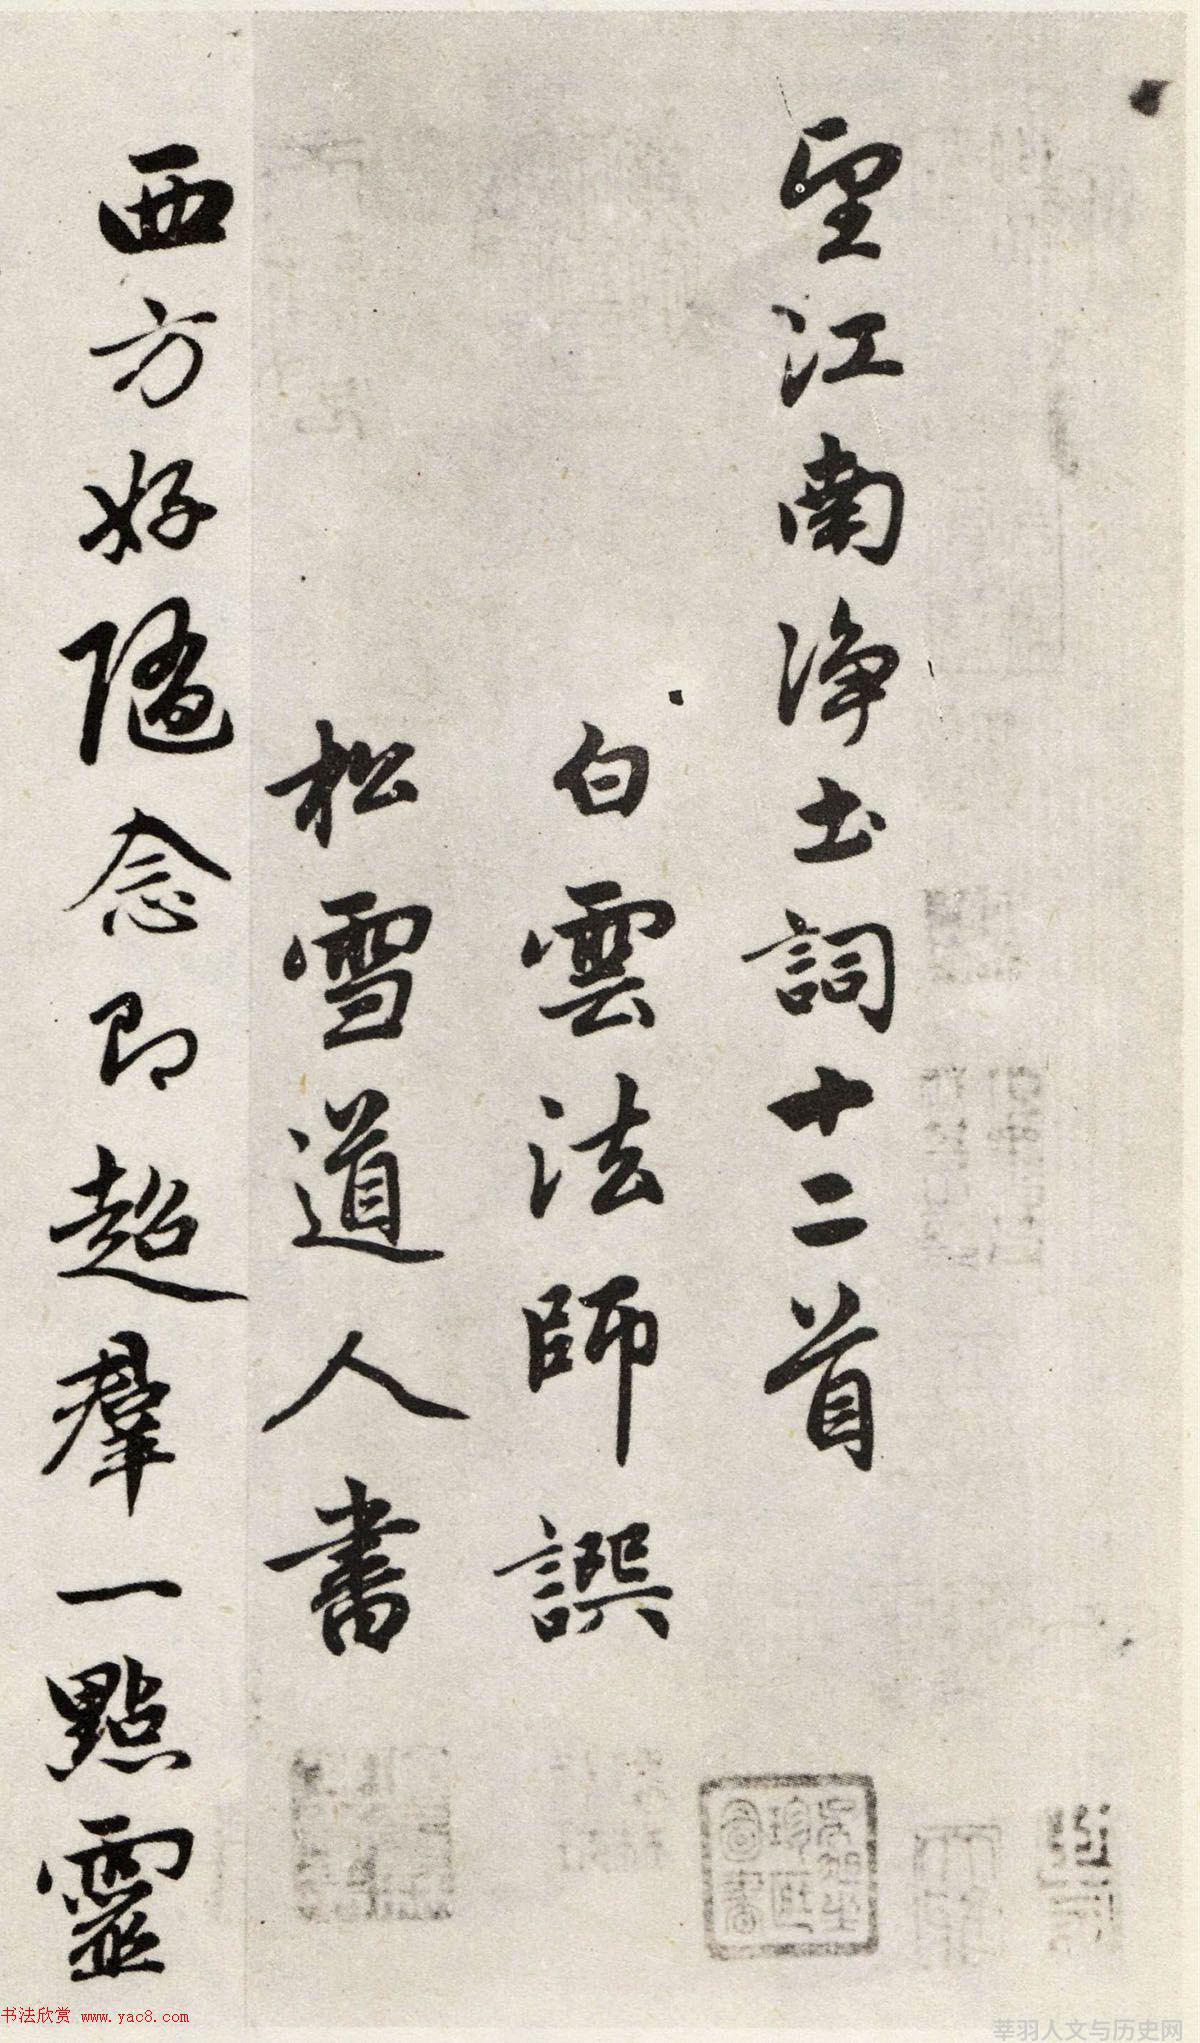 望江南淨土詞十二首
白雲法師譔
松雪道人書
西方好隨念即超羣一點靈
书法欣赏 www.yac8.com
莘羽人文与历史网